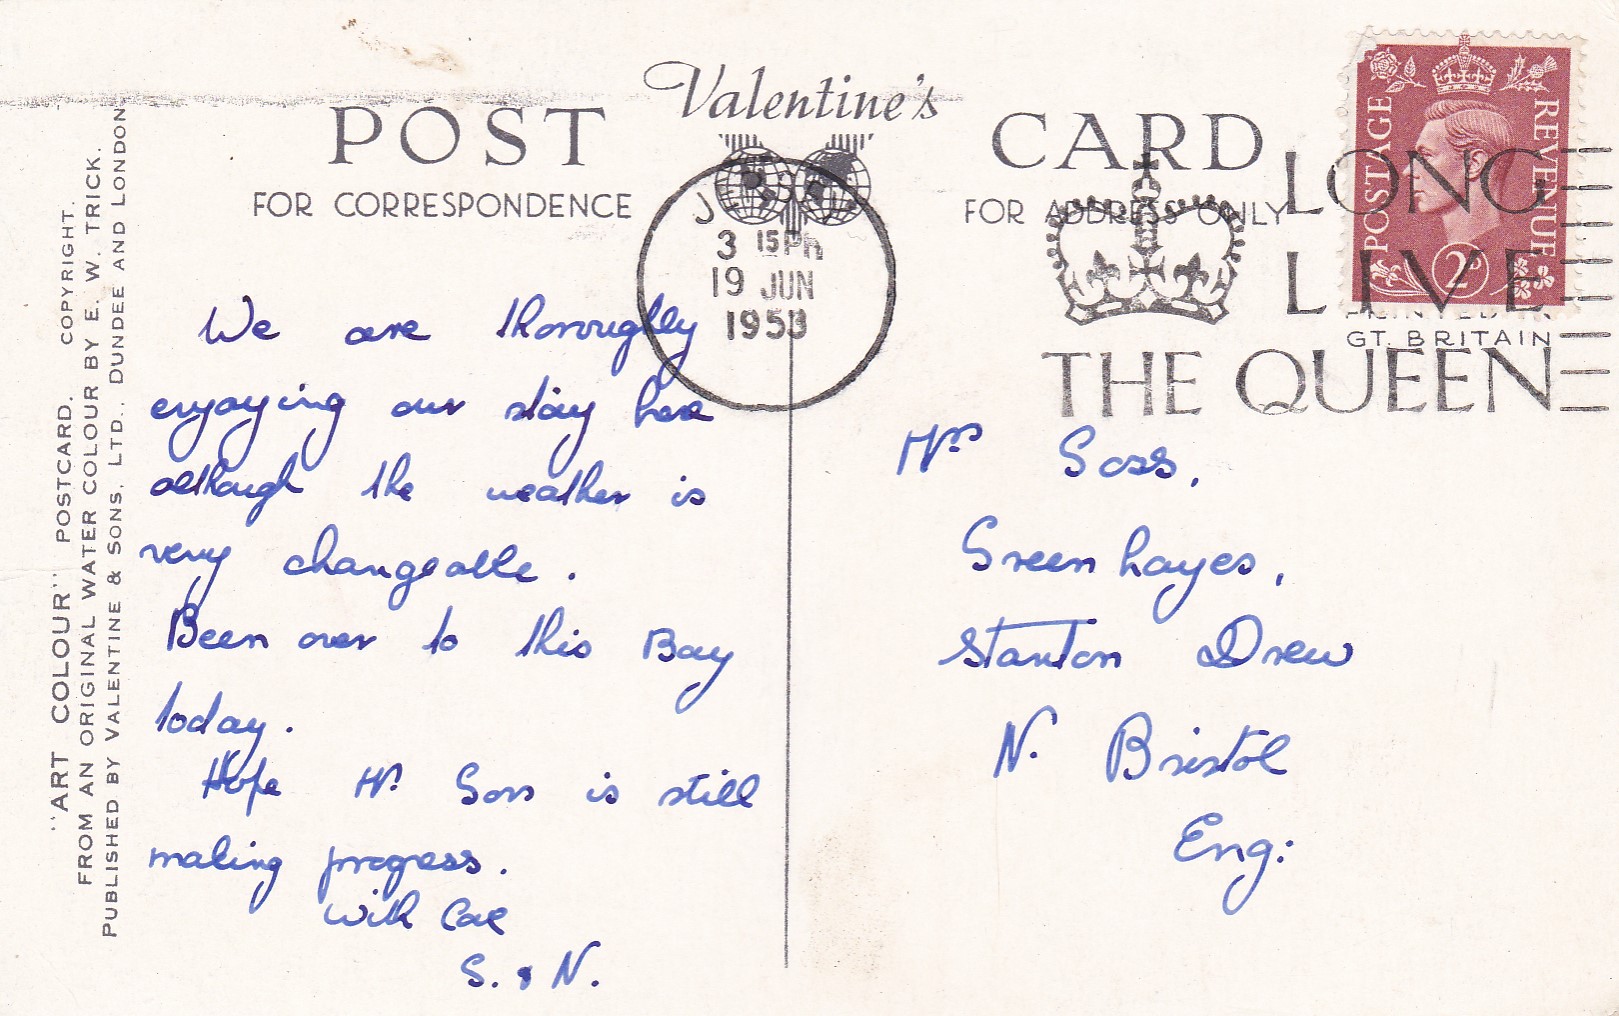 Valentine's
POST CARD
FOR CORRESPONDENCE
FOR ADDRESS ONLY
"ART COLOUR" POSTCARD. COPYRIGHT.
FROM AN ORIGINAL WATER COLOUR BY E. W. TRICK.
PUBLISHED BY VALENTINE & SONS, LTD., DUNDEE AND LONDON
3 15 PM
19 JUN
1953
LONG
LIVE
THE QUEEN
POSTAGE
REVENUE
2D
PRINTED IN
GT. BRITAIN
We are thoroughly
enjoying our stay here
although the weather is
very changeable.
Been over to this Bay
today.
Hope Mr. Goss is still
making progress.
With
S. & N.
Mrs Goss,
Greenhayes,
Stanton Drew
N. Bristol
Eng: